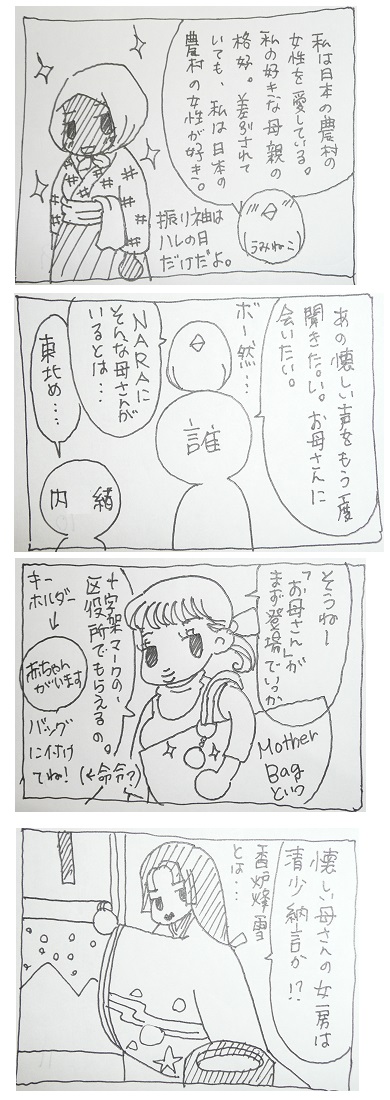 私は日本の農村の
女性を愛している。
私の好きな母親の
格好。差別されて
いても、私は日本の
農村の女性が好き。
うみねこ
振り袖は
ハレの日
だけだよ。
あの懐しい声をもう一度
聞きたい。お母さんに
会いたい。
ボー然…
NARAに
そんな母さんが
いるとは…
誰
東北め…
内緒
そうねー
「お母さん」が
まず登場でいっか
十字架マークの〜
区役所でもらえるの。
キー
ホルダー
↓
赤ちゃん
がいます
バッグ
に付け
てね！(←命令?)
Mother
Bag
という
懐しい母さんの女房は
清少納言か!?
香炉峰雪
とは…